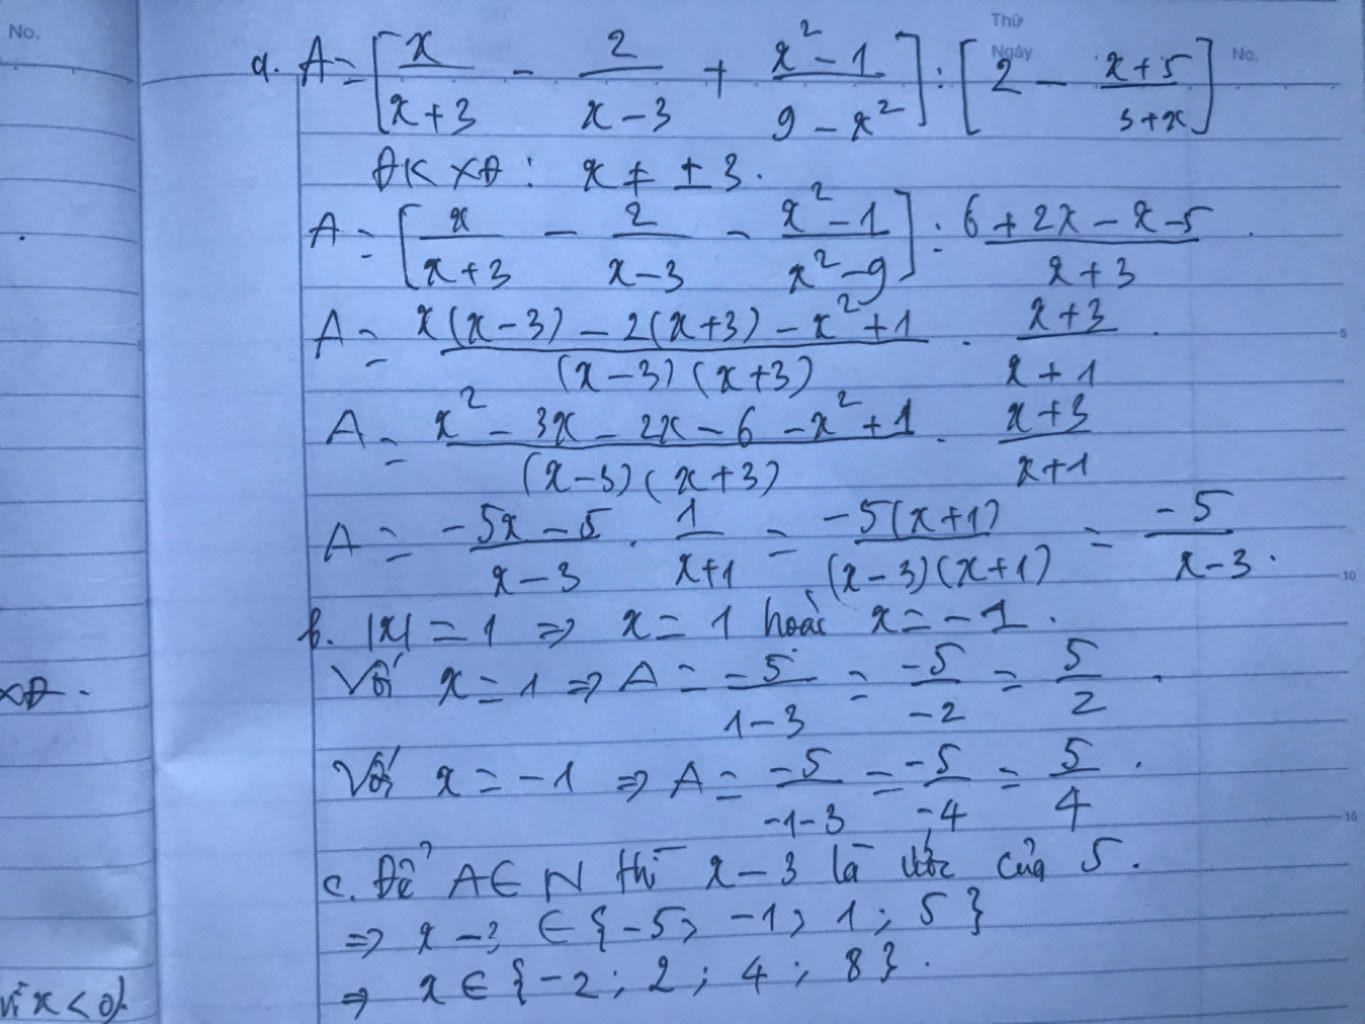 No.
Thứ
Ngày
No.
a. A = [x/(x+3) - 2/(x-3) + (x²-1)/(9-x²)] : [2 - (x+5)/(3+x)]
ĐKXĐ: x ≠ ±3.
A = [x/(x+3) - 2/(x-3) - (x²-1)/(x²-9)] : (6+2x-x-5)/(x+3)
A = (x(x-3) - 2(x+3) - x²+1)/((x-3)(x+3)) . (x+3)/(x+1)
5
A = (x² - 3x - 2x - 6 - x² + 1)/((x-3)(x+3)) . (x+3)/(x+1)
A = (-5x-5)/(x-3) . 1/(x+1) = -5(x+1)/((x-3)(x+1)) = -5/(x-3).
10
b. |x| = 1 => x = 1 hoặc x = -1.
Với x = 1 => A = -5/(1-3) = -5/-2 = 5/2.
XĐ.
Với x = -1 => A = -5/(-1-3) = -5/-4 = 5/4.
15
c. Để A ∈ N thì x-3 là ước của 5.
=> x-3 ∈ {-5; -1; 1; 5}
=> x ∈ {-2; 2; 4; 8}.
vì x < 0).